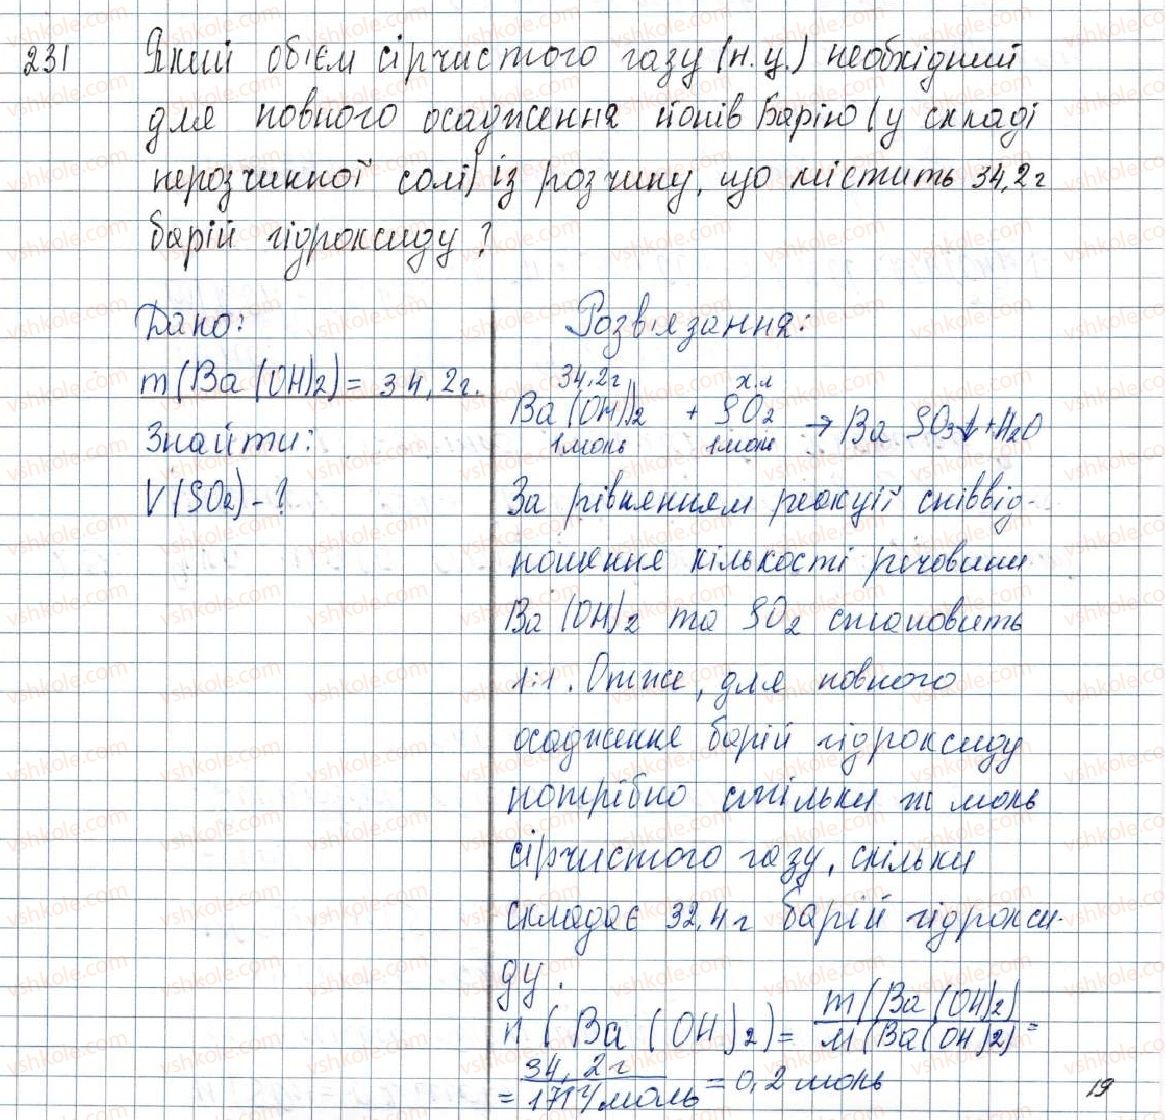 231 Який об'єм сірчистого газу (н.у.) необхідний
для повного осадження йонів Барію (у складі
нерозчинної солі) із розчину, що містить 34,2г
барій гідроксиду?
Дано:
m(Ba(OH)2) = 34,2г.
Знайти:
V(SO2) - ?
Розв'язання:
34,2г х.л
Ba(OH)2 + SO2 → BaSO3↓ + H2O
1моль 1моль
За рівнянням реакції співвід-
ношення кількості речовини
Ba(OH)2 та SO2 становить
1:1. Отже, для повного
осадження барій гідроксиду
потрібно стільки ж моль
сірчистого газу, скільки
складає 32,4г барій гідрокси-
ду.
n(Ba(OH)2) = m(Ba(OH)2)
M(Ba(OH)2) =
= 34,2г
171г/моль = 0,2 моль
19